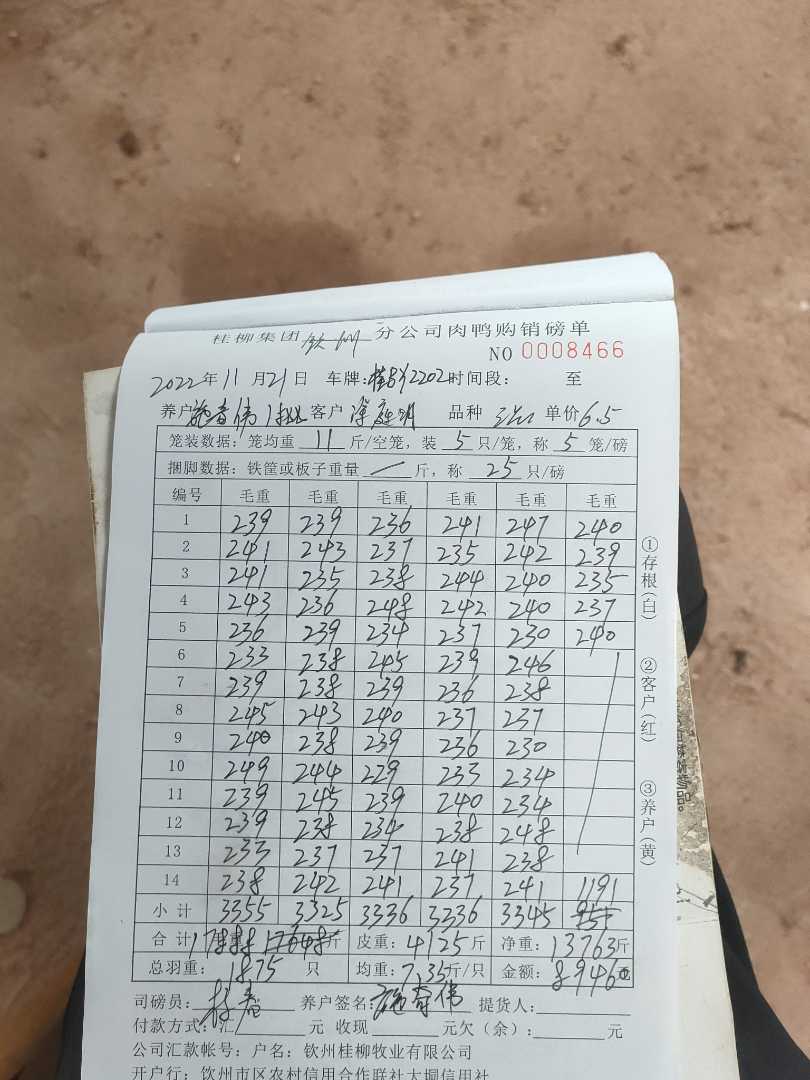 桂柳集团钦州分公司肉鸭购销磅单
NO 0008466
2022年11月21日 车牌: 2202时间段: 至
养户 客户 品种 单价6.5
笼装数据: 笼均重 11 斤/空笼, 装 5 只/笼, 称 5 笼/磅
捆脚数据: 铁筐或板子重量 — 斤, 称 25 只/磅
编号 毛重 毛重 毛重 毛重 毛重 毛重
1 239 239 236 241 247 240
2 241 243 237 235 242 239
3 241 235 238 244 240 235
4 243 236 248 242 240 237
5 236 239 234 237 230 240
6 233 238 245 239 246
7 239 238 239 236 238
8 245 243 240 237 237
9 240 238 239 236 230
10 249 244 229 233 234
11 239 245 239 240 234
12 239 238 234 238 248
13 233 237 237 241 238
14 238 242 241 237 241 1191
小计 3355 3325 3336 3236 3345
合计 重: 斤 皮重: 4125斤 净重: 13763斤
总羽重: 1875 只 均重: 7.35斤/只 金额:
司磅员: 养户签名: 提货人:
付款方式: 汇 元 收现 元欠(余): 元
公司汇款帐号: 户名: 钦州桂柳牧业有限公司
开户行: 钦州市区农村信用合作联社大垌信用社
①存根(白)
②客户(红)
③养户(黄)